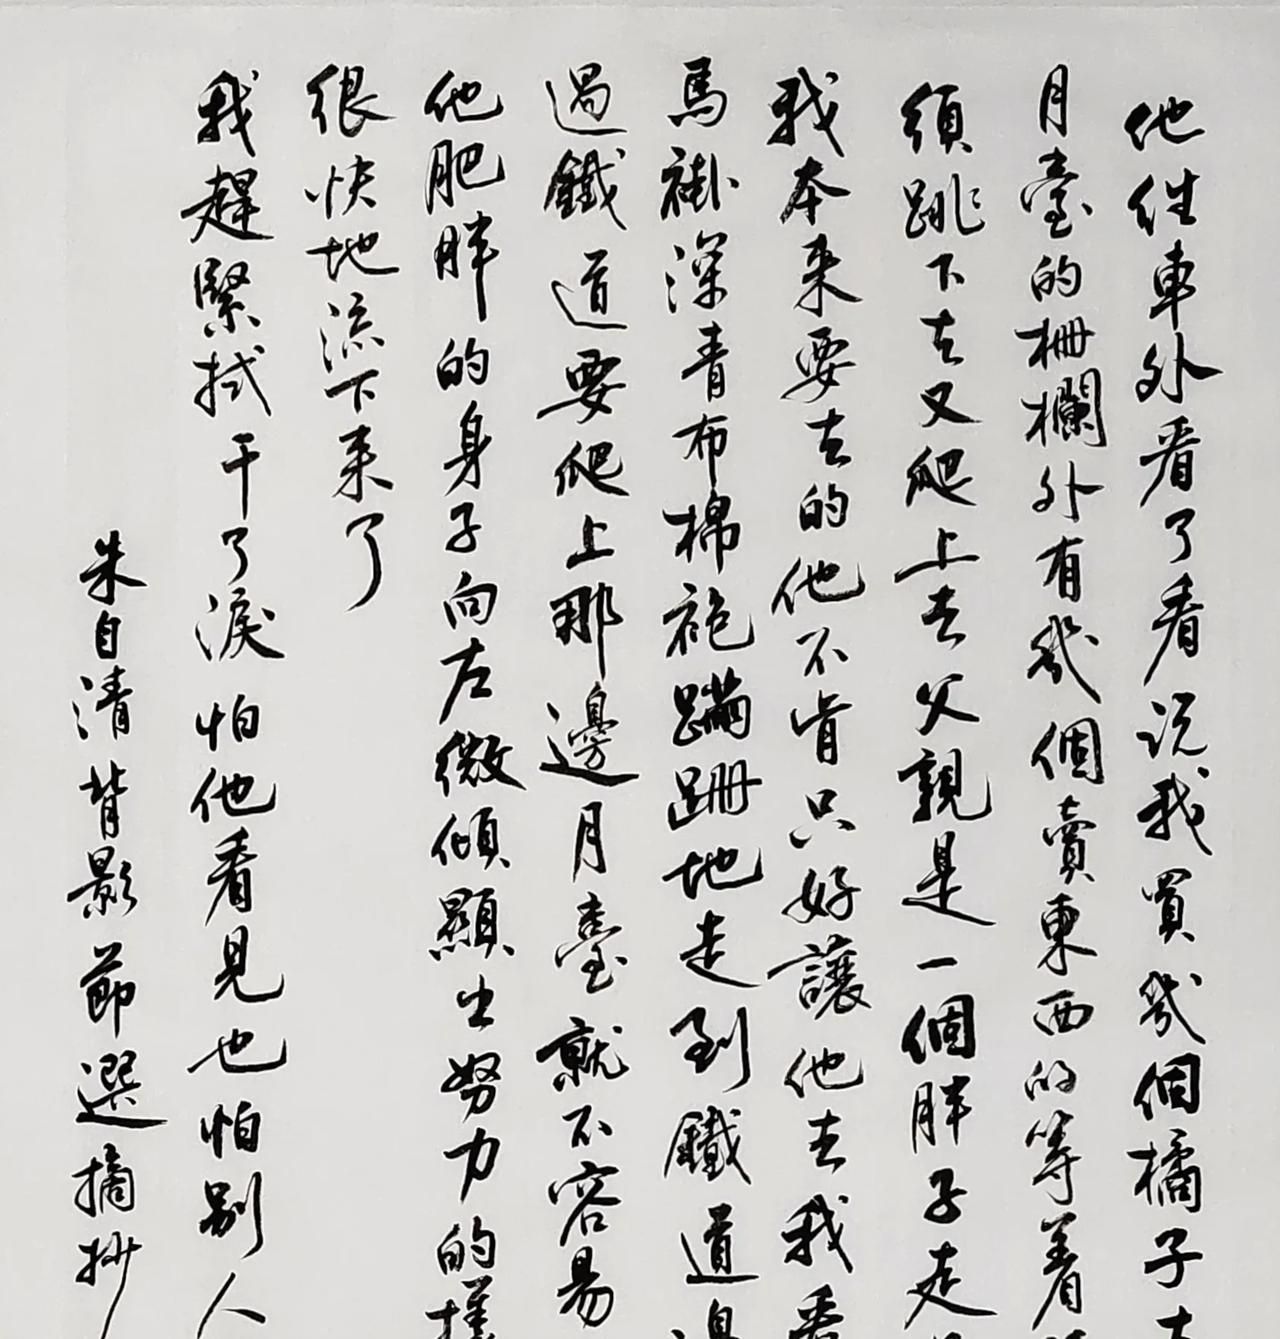 他往車外看了看说我買幾個橘子去
月臺的柵欄外有幾個賣東西的等着
須跳下去又爬上去父親是一個胖子走
我本来要去的他不肯只好讓他去我看
馬褂深青布棉袍蹣跚地走到鐵道邊
過鐵道要爬上那邊月臺就不容易
他肥胖的身子向左微傾顯出努力的樣
很快地流下来了
我趕緊拭干了淚怕他看見也怕别人
朱自清背影節選摘抄